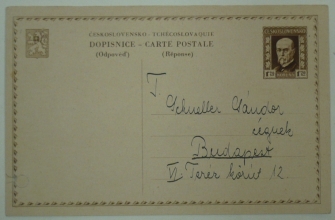 ČESKOSLOVENSKO - TCHÉCOSLOVAQUIE
DOPISNICE - CARTE POSTALE
(Odpověď) (Réponse)
T.
Schneller Sándor
cégnek
Budapest
VI Teréz körút 12.